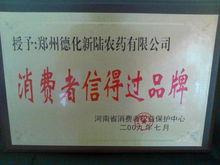 授予:郑州德化新陆农药有限公司
消费者信得过品牌
河南省消费者权益保护中心
二00九年七月